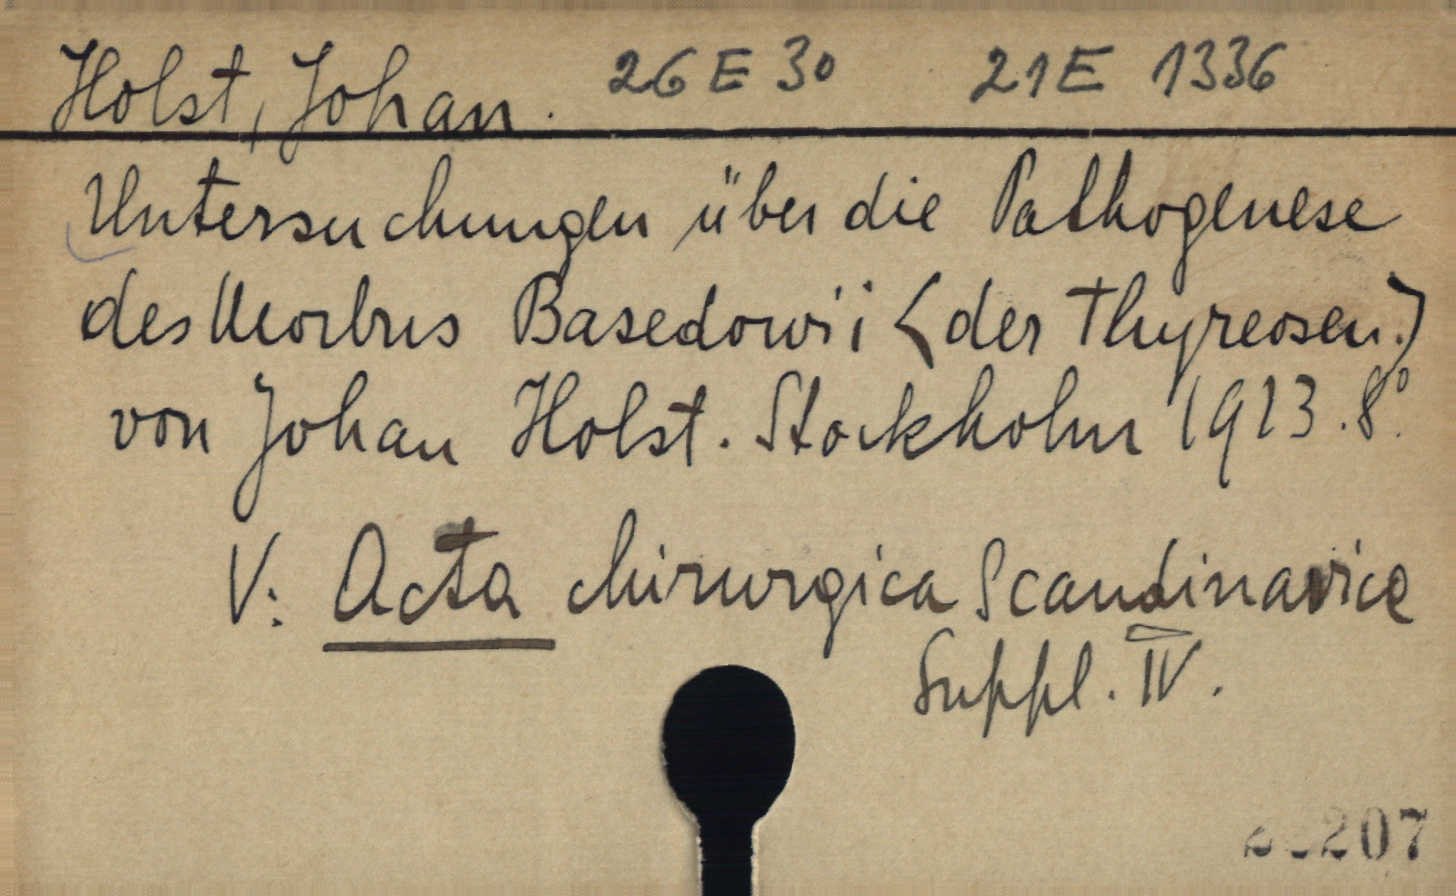 Holst, Johan. 26 E 30 21 E 1336
Untersuchungen über die Pathogenese
des Morbus Basedowii <der Thyreosen.>
von Johan Holst. Stockholm 1923. 8°.
V: Acta chirurgica Scandinavica
Suppl. IV.
207